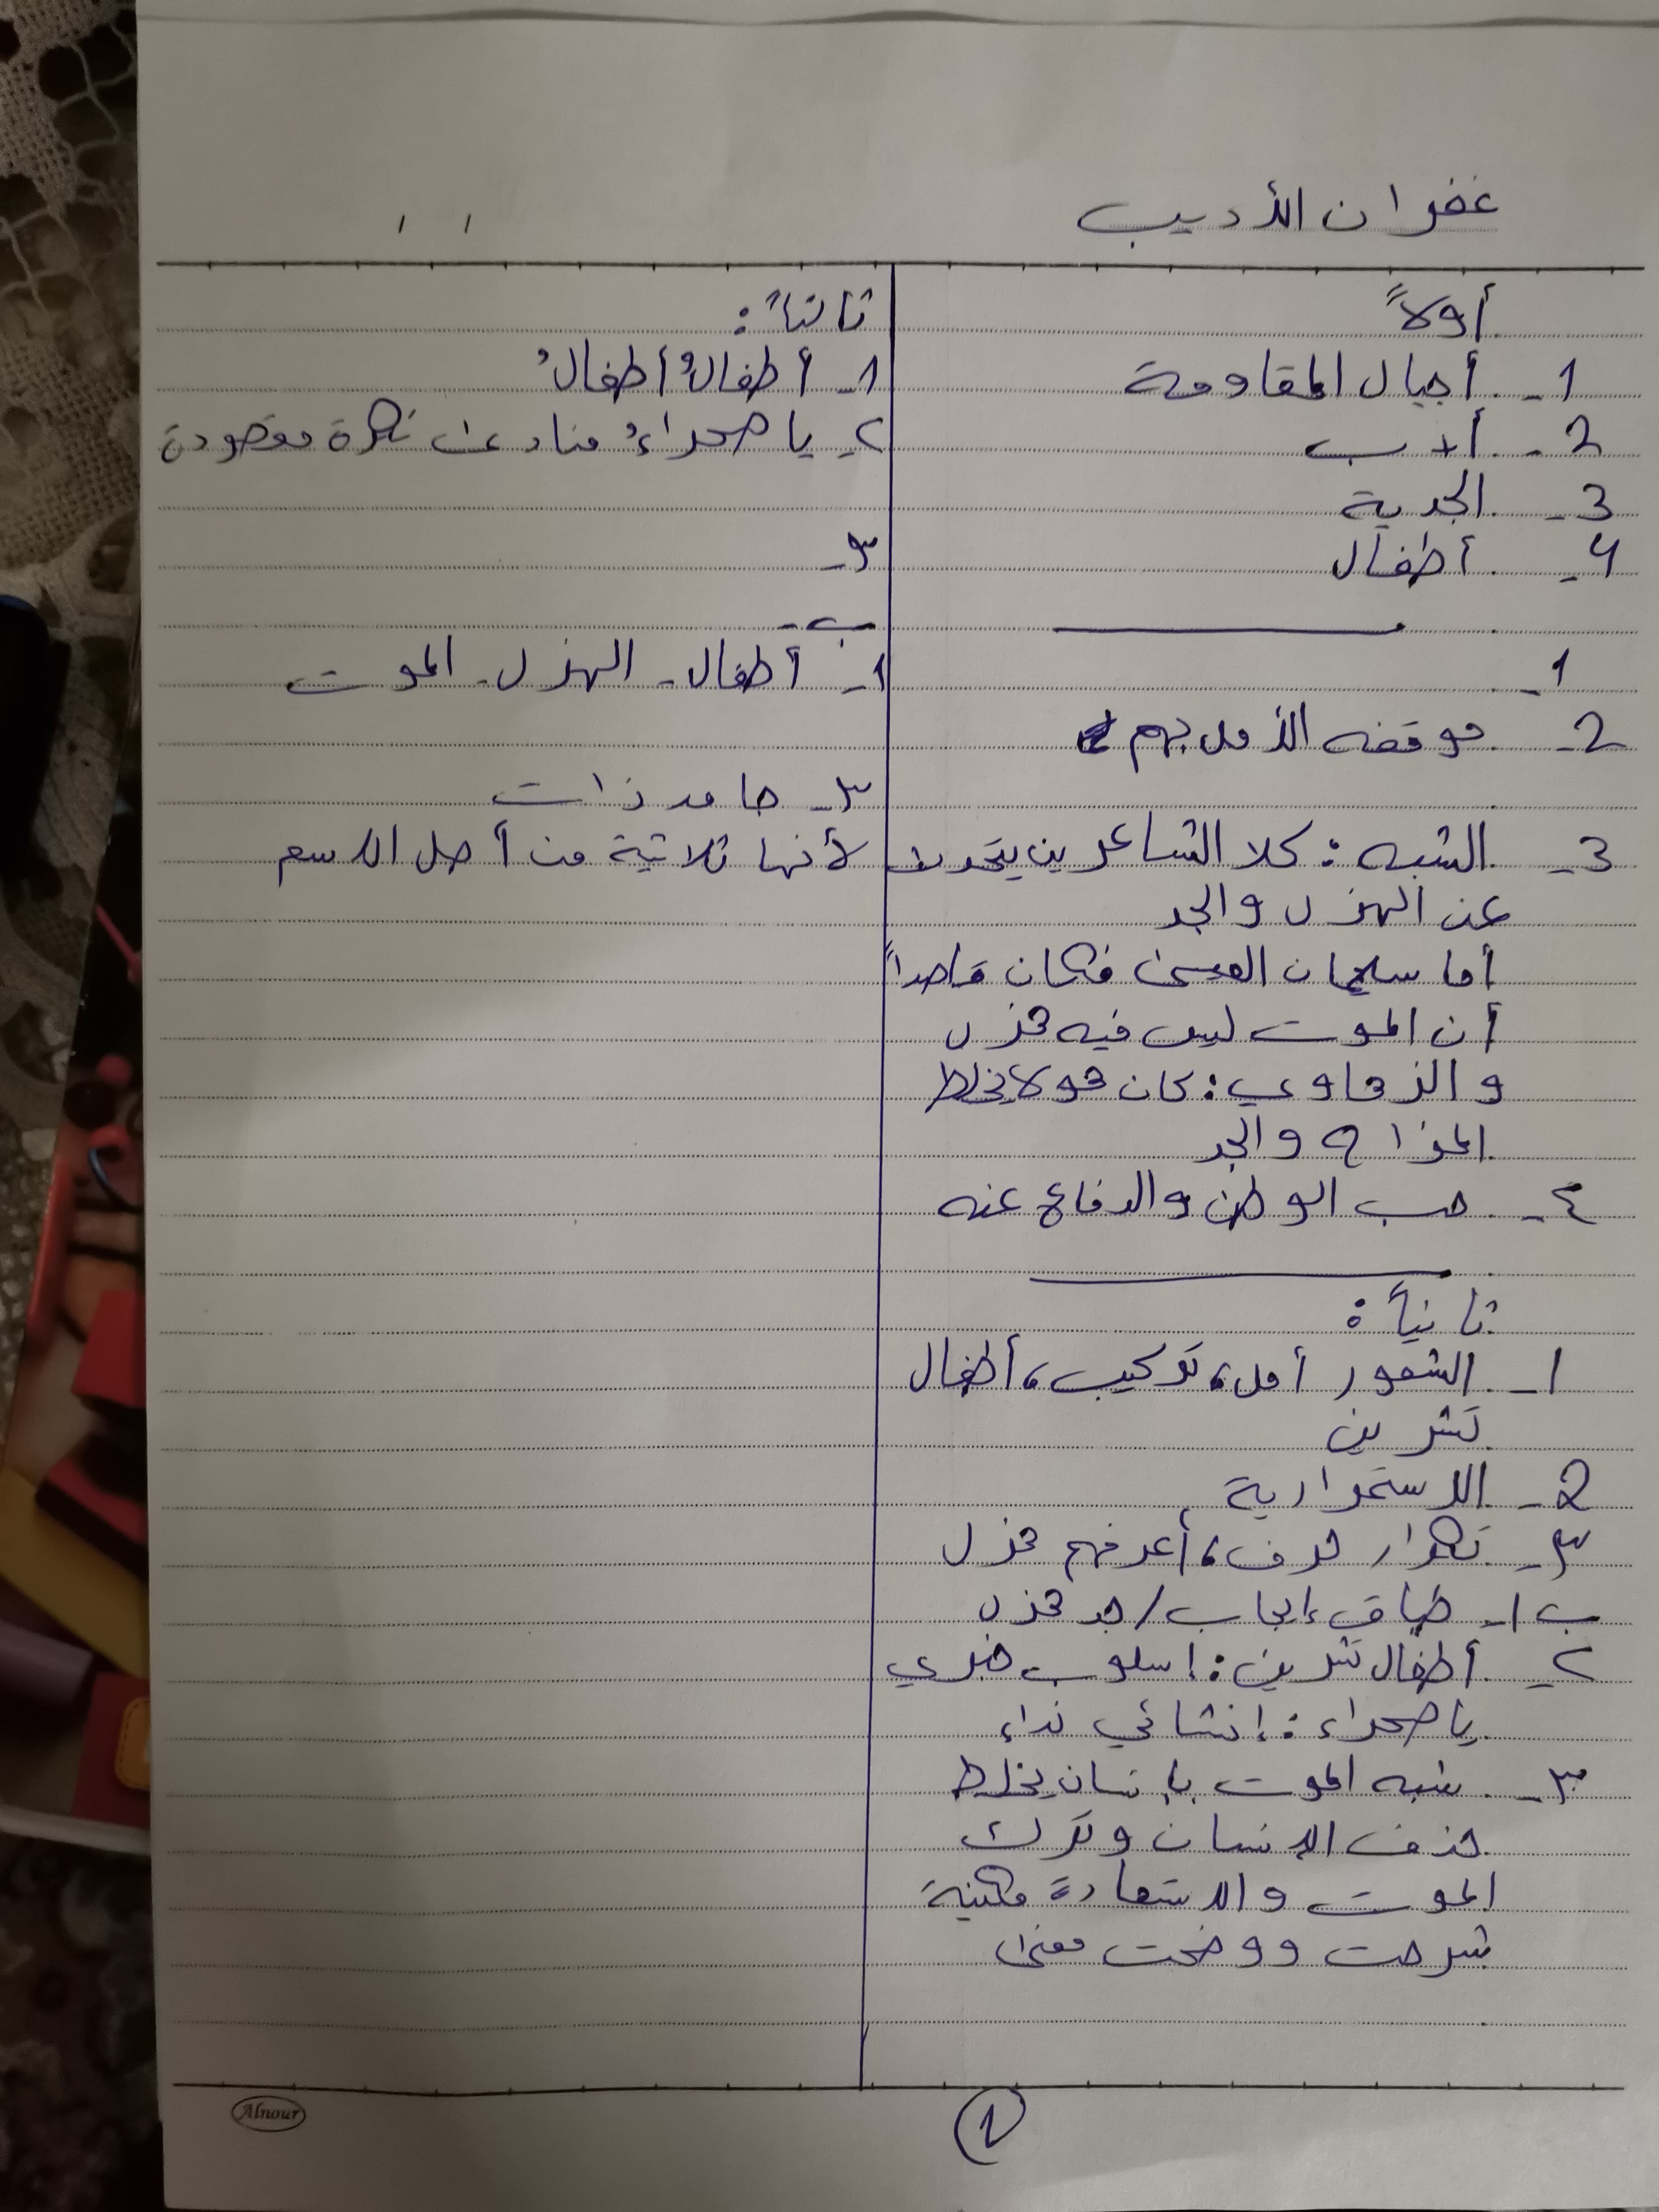 غفران الأديب
أولاً
1- أجيال المقاومة
2- أدب
3- الجدية
4- أطفال
1-
2- موقفه الأمل بهم
3- الشبه : كلا الشاعرين يتحدث
عن الهزل والجد
أما سليمان العيسى فكان قاصداً
أن الموت ليس فيه هزل
والزهاوي : كان هو لا يخلط
المزاح والجد
٤- حب الوطن والدفاع عنه
ثانياً :
1- الشعور أمل، تركيب، أطفال
تشرين
2- الاستمرارية
٣- تكرار حرف، أعرفهم هزل
ب 1- طباق إيجاب / جد هزل
٢- أطفال تشرين : اسلوب خبري
يا صحراء : إنشائي نداء
٣- شبه الموت بإنسان يخلط
حذف الإنسان وترك
الموت والاستعارة مكنية
شرحت ووضحت معنى
ثالثاً :
1- أطفالُ أطفالُ
٢- يا صحراءُ منادى نكرة مقصودة
٣-
ب-
1- أطفال - الهزل - الموت
٣- جامد ذات
لأنها ثلاثية من أصل الاسم
1
Alnour